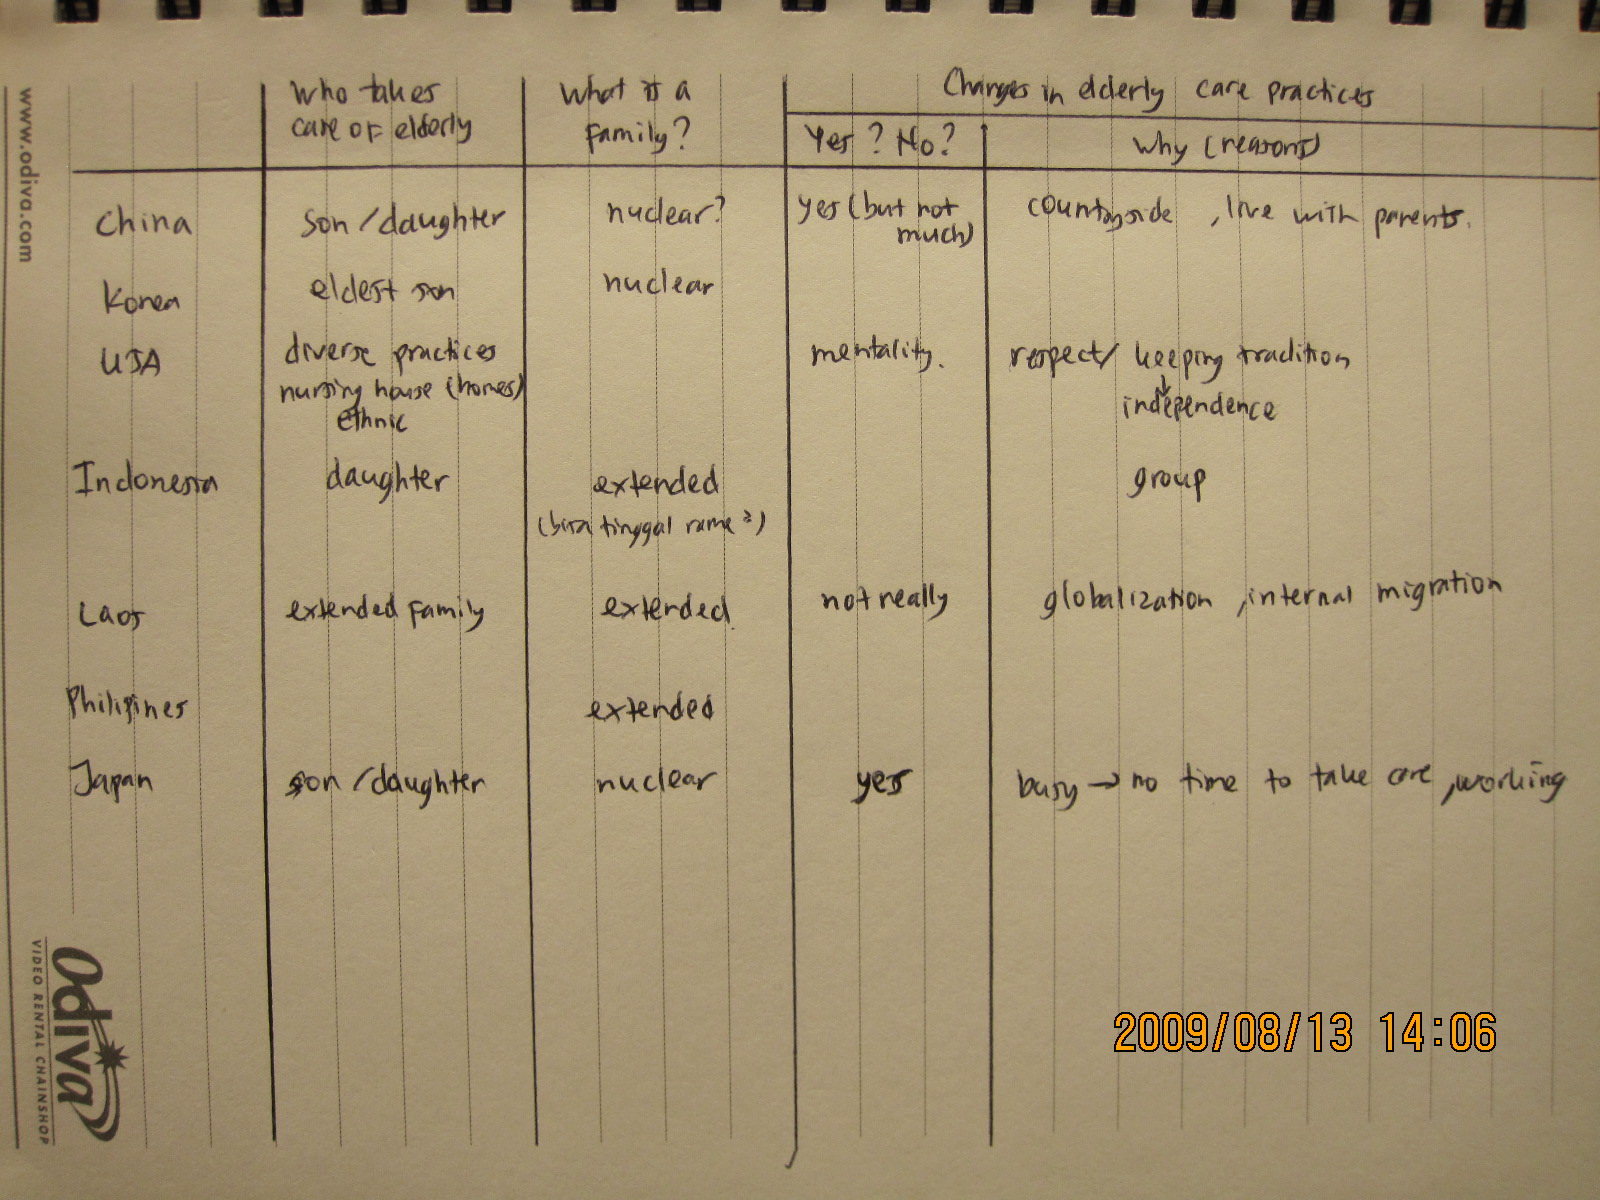 www.odiva.com
Who takes care of elderly
What is a family?
Changes in elderly care practices
Yes? No?
Why (reasons)
China
son/daughter
nuclear?
yes (but not much)
countryside, live with parents.
Korea
eldest son
nuclear
USA
diverse practices
nursing house (homes)
ethnic
mentality.
respect/ keeping tradition
↓
independence
Indonesia
daughter
extended
(bisa tinggal rame²)
group
Laos
extended family
extended.
not really
globalization, internal migration
Philipines
extended
Japan
son/daughter
nuclear
yes
busy → no time to take care, working
Odiva
VIDEO RENTAL CHAINSHOP
2009/08/13 14:06